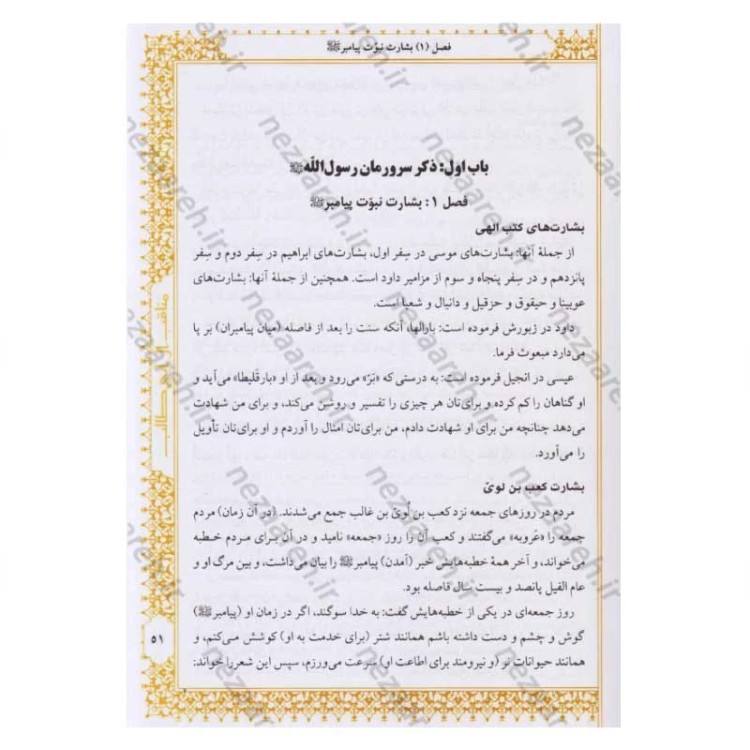 فصل (۱) بشارت نبوّت پیامبرﷺ
باب اول: ذکر سرورمان رسول‌اللّهﷺ
فصل ۱: بشارت نبوّت پیامبرﷺ
بشارت‌های کتب الهی
از جملهٔ آنها: بشارت‌های موسی در سِفر اول، بشارت‌های ابراهیم در سِفر دوم و سِفر
پانزدهم و در سِفر پنجاه و سوم از مزامیر داود است. همچنین از جملهٔ آنها: بشارت‌های
عوبیتا و حیقوق و حزقیل و دانیال و شعیا است.
داود در زبورش فرموده است: بارالها، آنکه سنت را بعد از فاصله (میان پیامبران) بر پا
می‌دارد مبعوث فرما.
عیسی در انجیل فرموده است: به درستی که «بَرّ» می‌رود و بعد از او «بارقَلیطا» می‌آید و
او گناهان را کم کرده و برای‌تان هر چیزی را تفسیر و روشن می‌کند، و برای من شهادت
می‌دهد چنانچه من برای او شهادت دادم، من برای‌تان امثال را آوردم و او برای‌تان تأویل
را می‌آورد.
بشارت کعب بن لویّ
مردم در روزهای جمعه نزد کعب بن لُویّ بن غالب جمع می‌شدند. (در آن زمان) مردم
جمعه را «عَروبه» می‌گفتند و کعب آن را روز «جمعه» نامید و در آن برای مردم خطبه
می‌خواند، و آخر همهٔ خطبه‌هایش خبر (آمدن) پیامبرﷺ را بیان می‌داشت، و بین مرگ او و
عام الفیل پانصد و بیست سال فاصله بود.
روز جمعه‌ای در یکی از خطبه‌هایش گفت: به خدا سوگند، اگر در زمان او (پیامبرﷺ)
گوش و چشم و دست داشته باشم همانند شتر (برای خدمت به او) کوشش می‌کنم، و
همانند حیوانات نر (و نیرومند برای اطاعت او) سرعت می‌ورزم، سپس این شعر را خواند:
۵۱
nezaareh.ir
nezaareh.ir
nezaareh.ir
nezaareh.ir
nezaareh.ir
nezaareh.ir
nezaareh.ir
nezaareh.ir